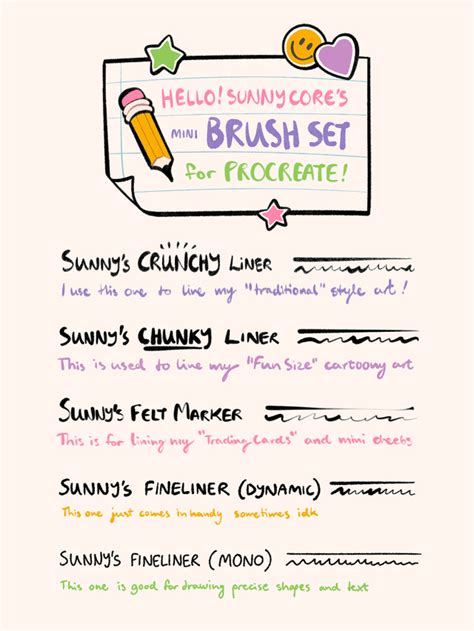 HELLO! SUNNYCORE'S
MINI BRUSH SET
for PROCREATE!
SUNNY'S CRUNCHY LINER
I use this one to line my "traditional" style art!
SUNNY'S CHUNKY LINER
This is used to line my "Fun Size" cartoony art
SUNNY'S FELT MARKER
This is for lining my "Trading Cards" and mini cheebs
SUNNY'S FINELINER (DYNAMIC)
This one just comes in handy sometimes idk
SUNNY'S FINELINER (MONO)
This one is good for drawing precise shapes and text